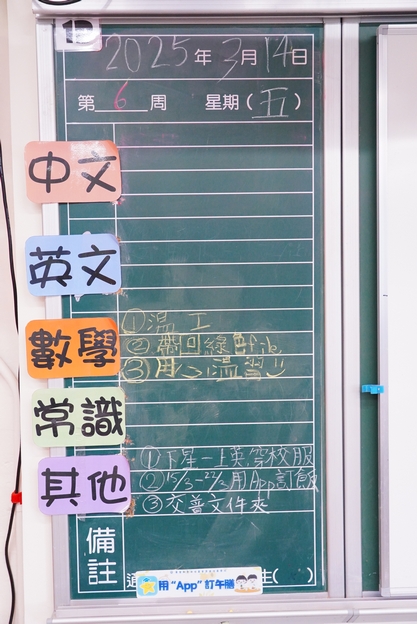 2025年3月14日
第6周 星期(五)
中文
英文
數學
①溫工
②帶回綠色file
③用心溫習!!
常識
其他
①下星一上英穿校服
②15/3-22/3用App訂飯
③交普文件夾
備註
用"App"訂午膳
生( )